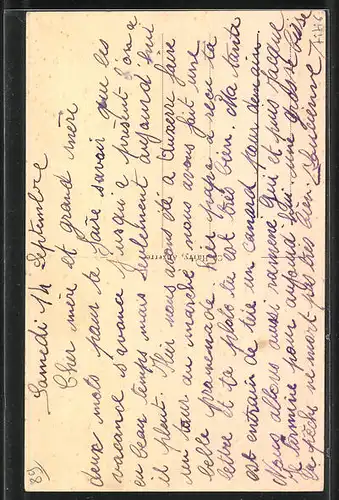 Samedi 14 Septembre
Cher mère et grand mère
deux mots pour te faire savoir que les
vacance savance jusqu'a present on a
eu beau temps mais seulement aujourd'hui
il pleut. Hier nous avons été a Auxerre faire
un tour au marché nous avons fait une
belle promenade papa a reçu ta
lettre et ta photo tu est très bien. Ma tante
est entrain de tuer un canard pour demain
Nous allons aussi ramené Guy et puis Jacques
Je termine pour aujourd'hui une grosse bise
La pêche ne mort pas très bien Lucienne
Auxerre
89